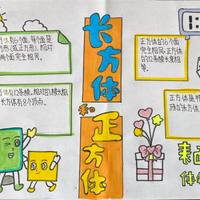 长方体
和
正方体
有6个面,每个面是
方形(或正方形),相对
两个面完全相同。
的12条棱,相对的棱长相
长方体有8个顶点。
正方体的6个面
完全相同,正方体
的12条棱长度相
等。
正方体是
表面
体